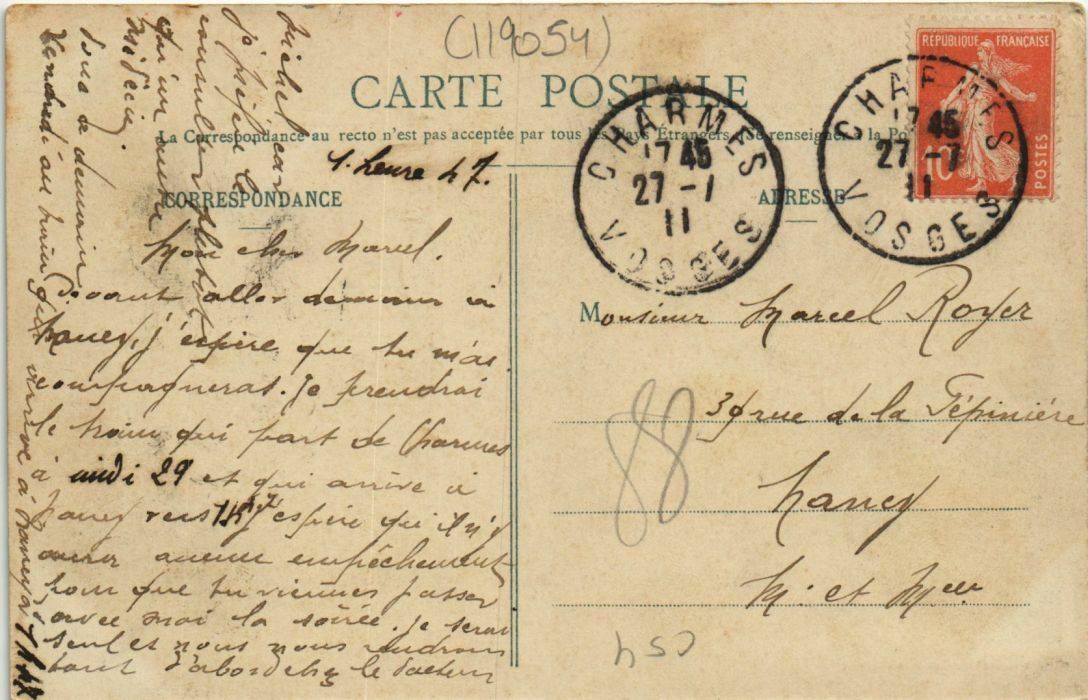 (119054)
CARTE POSTALE
La Correspondance au recto n'est pas acceptée par tous les Pays Etrangers (Se renseigner à la Po
CORRESPONDANCE
ADRESSE
REPUBLIQUE FRANÇAISE
10c
POSTES
CHARMES
17 45
27 - 7
11
VOSGES
CHARMES
17 45
27 - 7
11
VOSGES
1. heure 47.
Mon cher Marcel.
Devant aller demain à
Nancy, j'espère que tu m'ac
compagneras. Je prendrai
le train qui part de Charmes
à midi 29 et qui arrive à
Nancy vers 1h47 j'espère qu'il n'y
aura aucun empêchement
pour que tu viennes passer
avec moi la soirée. Je serai
seul et nous nous rendrons
tout d'abord chez le docteur
Michel car
je préfère le
consulter plutôt
qu'un autre
médecin.
Donc à demain
Vendredi au train qui arrive à Nancy à 1h47
Monsieur Marcel Royer
39 rue de la Pépinière
Nancy
M. et Melle
88